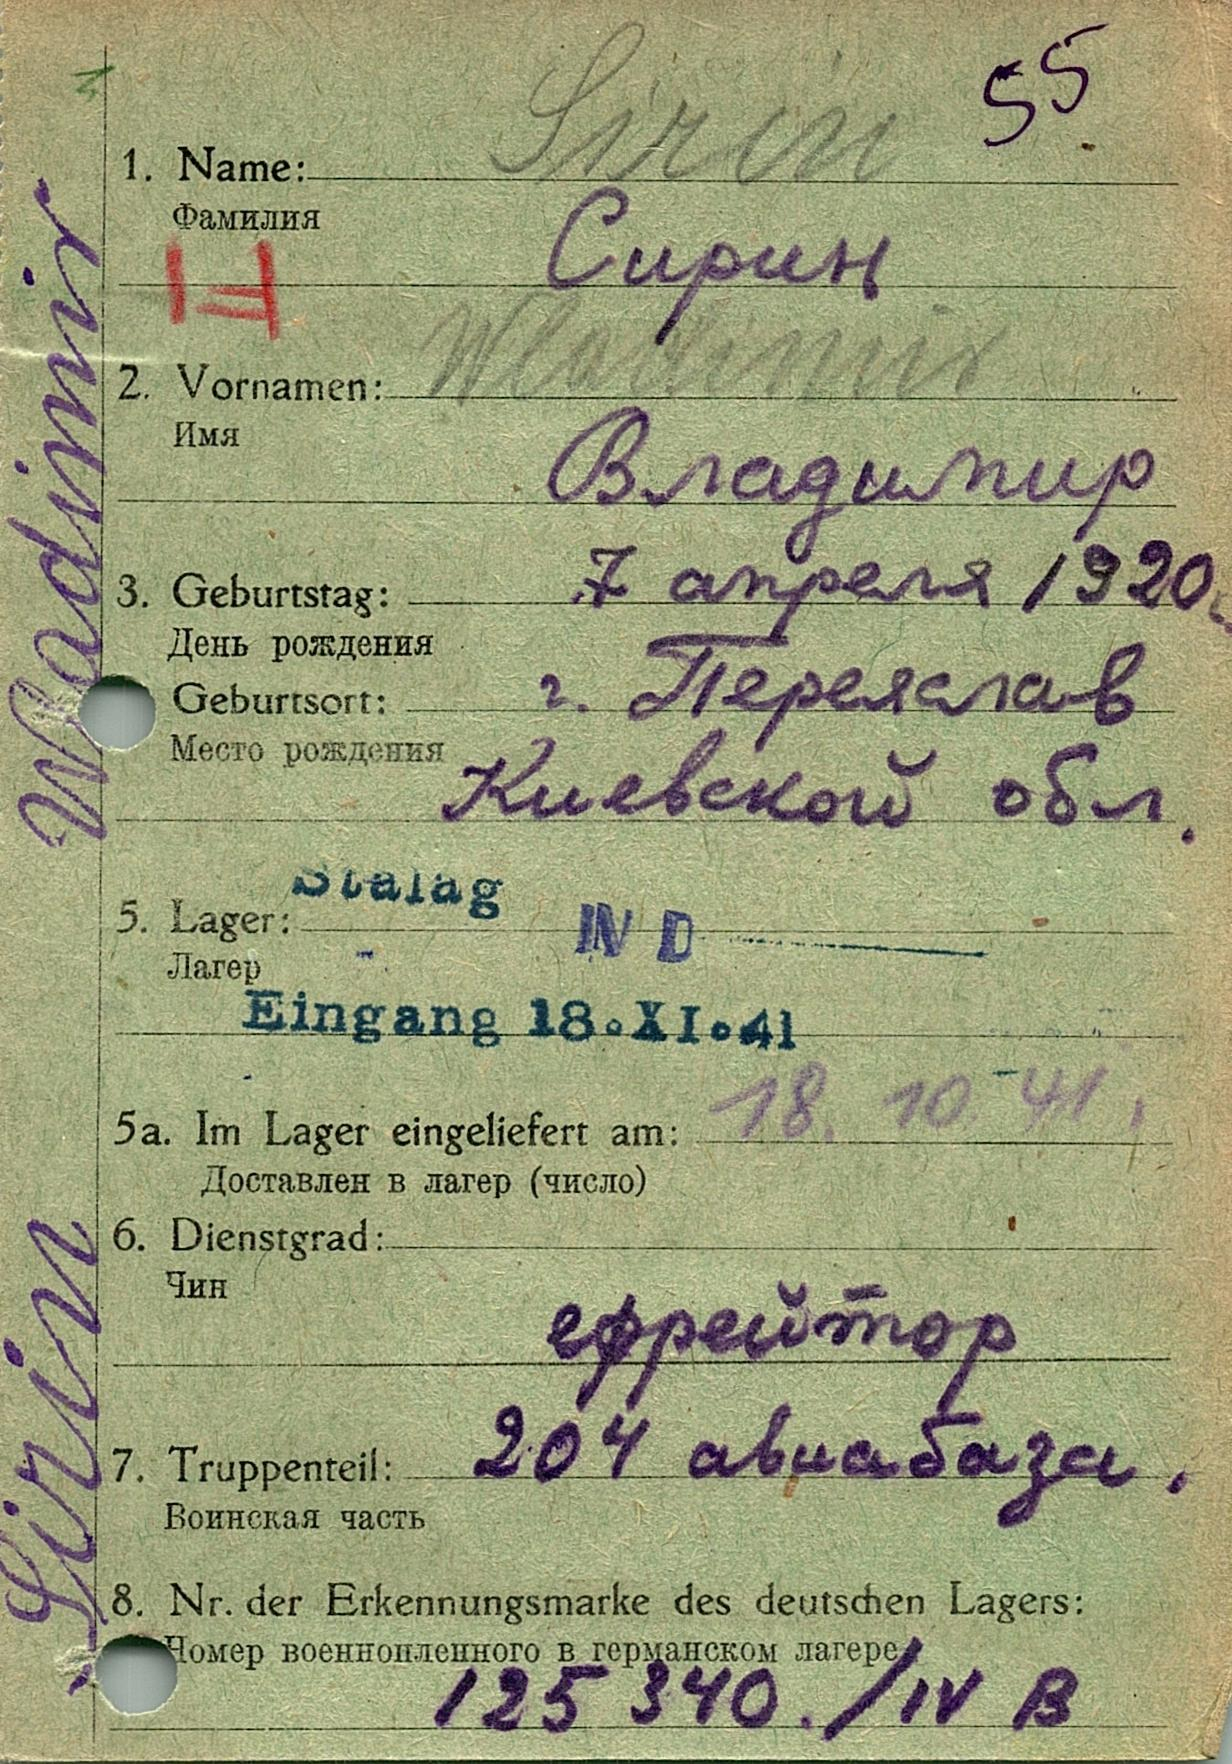 55
Sirin
1. Name:
Фамилия
Сирин
Wladimir
2. Vornamen:
Имя
Владимир
3. Geburtstag: 7 апреля 1920
День рождения
Geburtsort: г. Переяслав
Место рождения
Киевской обл.
Stalag
5. Lager: IV D
Лагер
Eingang 18.XI.41
5a. Im Lager eingeliefert am: 18. 10 41.
Доставлен в лагер (число)
6. Dienstgrad:
Чин
ефрейтор
7. Truppenteil: 204 авиабаза.
Воинская часть
8. Nr. der Erkennungsmarke des deutschen Lagers:
Номер военнопленного в германском лагере
125340./IV B
Sirin Wladimir